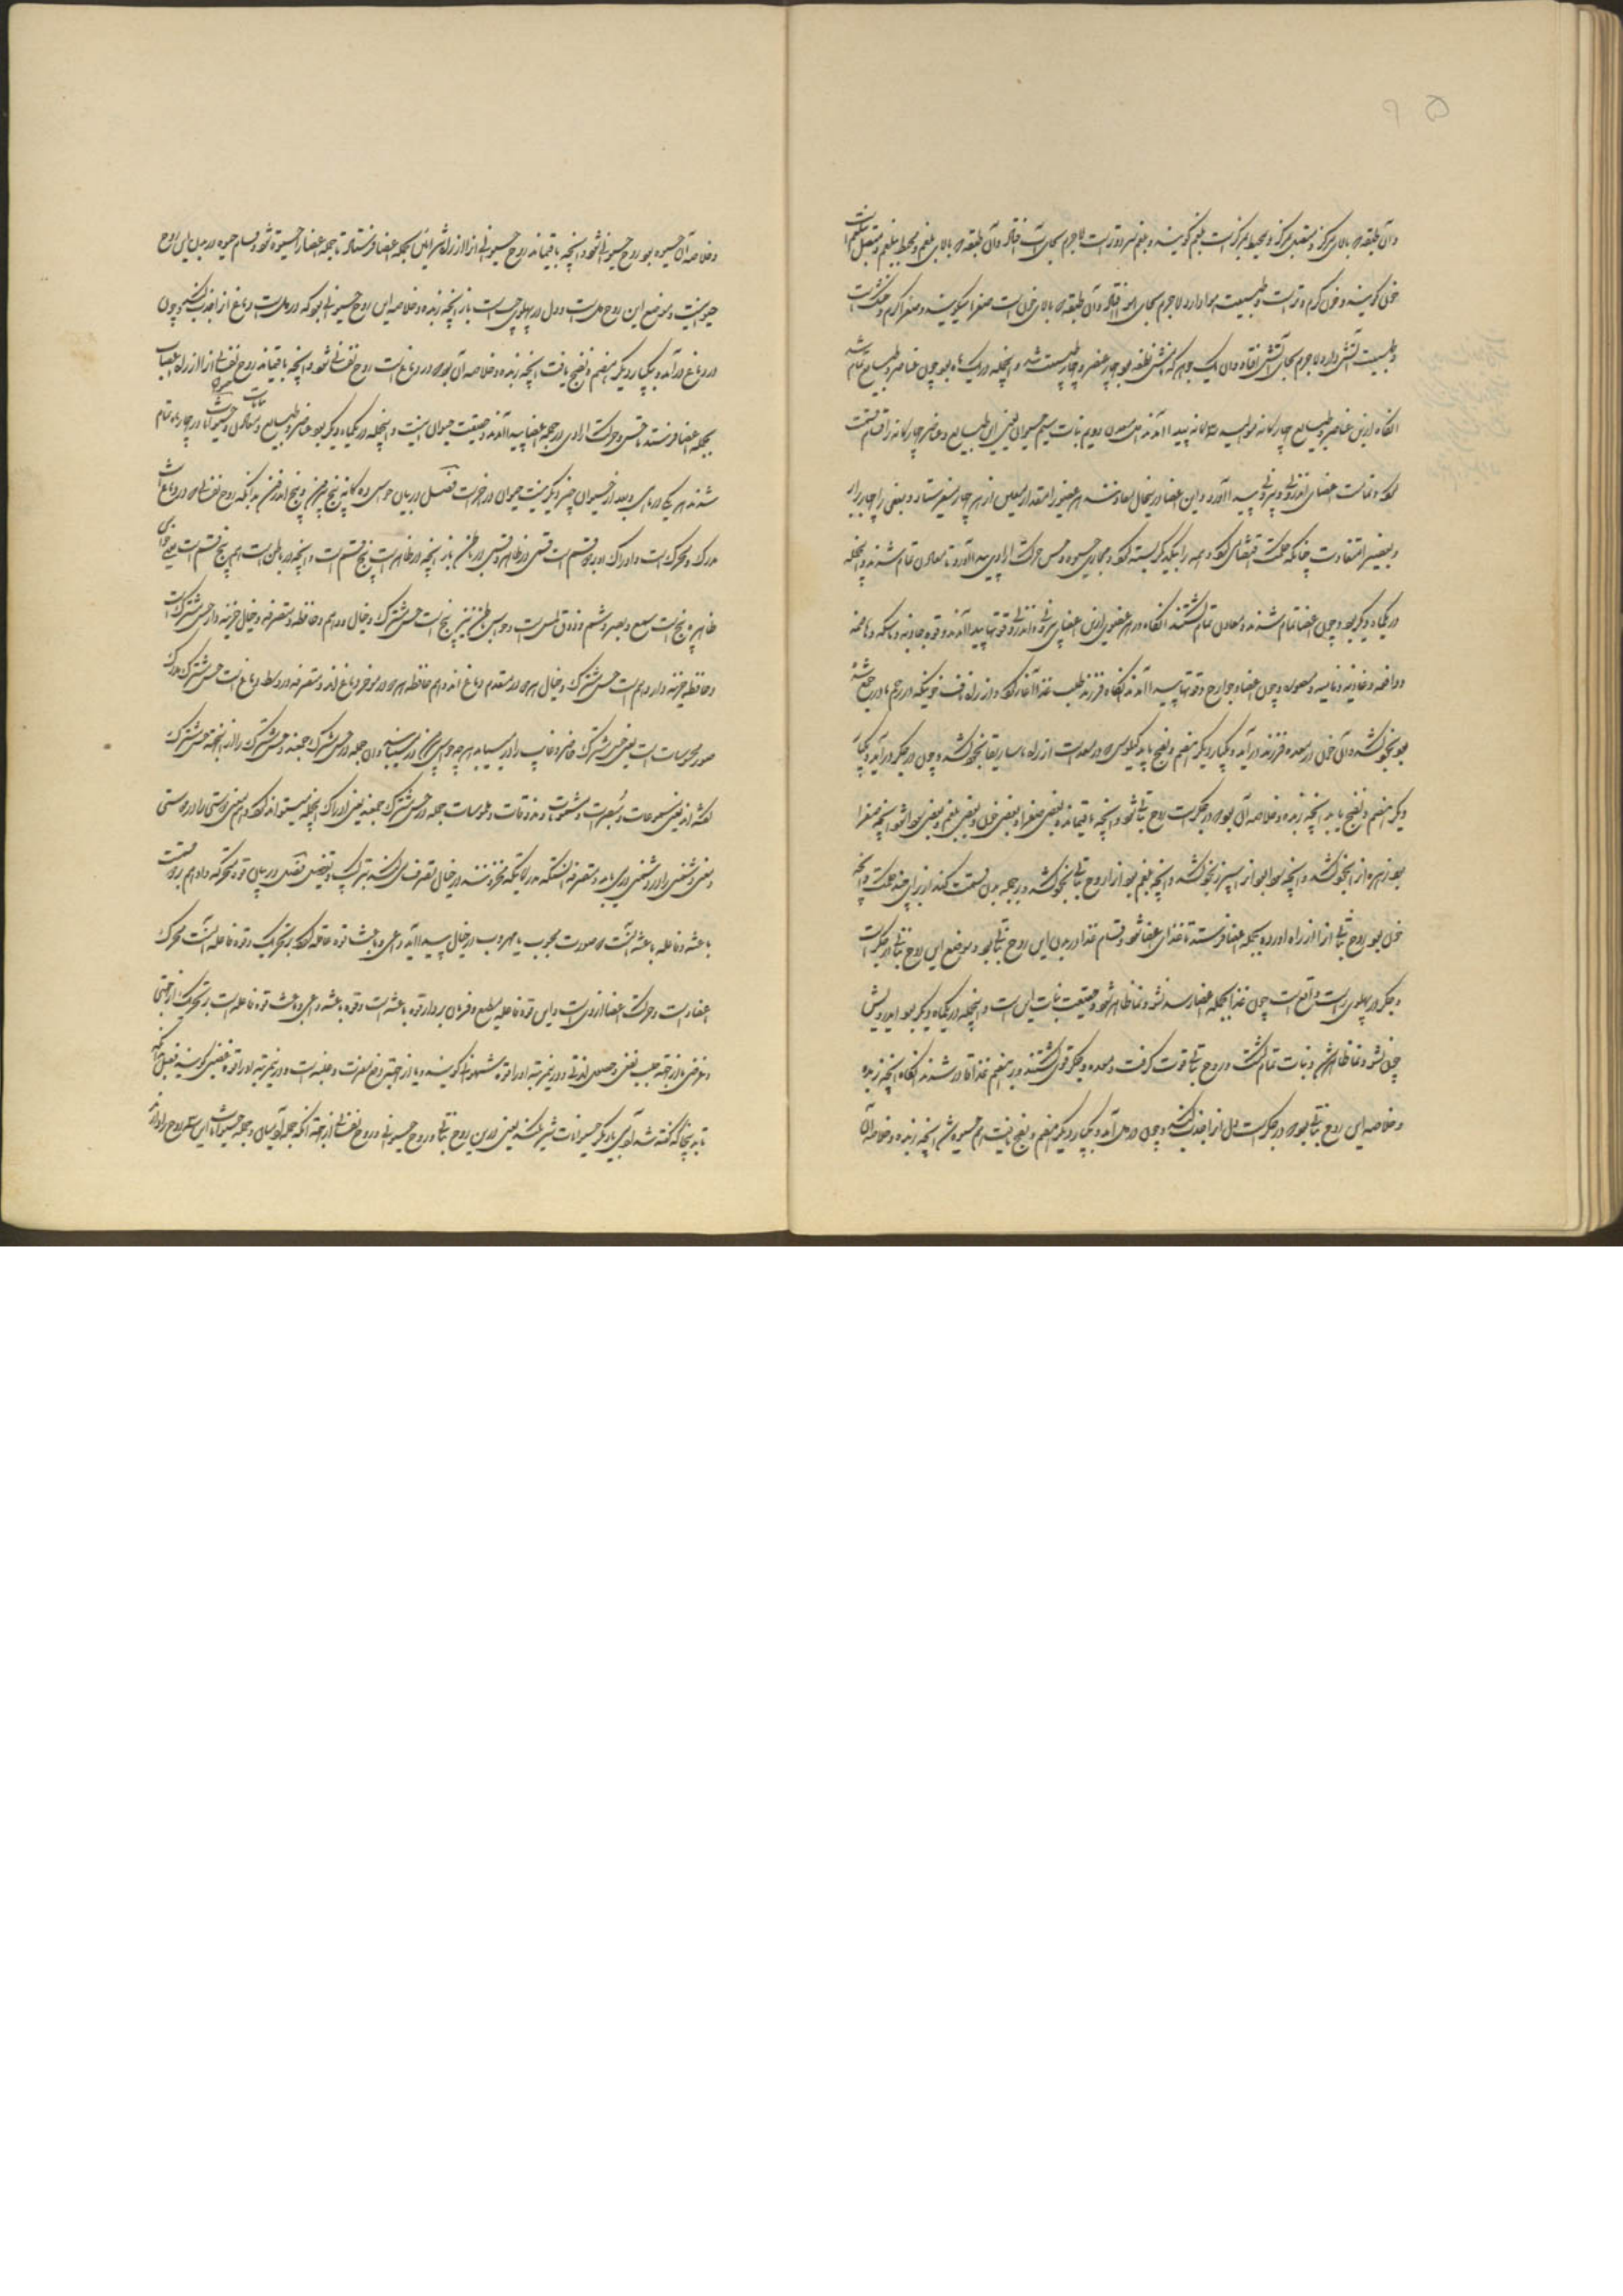 وآن طبقه که بالای مرکز و متصل مرکز و محیط مرکزست بلغم گویند و بلغم سرد و ترست لاجرم بجای آب افتاد وآن طبقه که بالای بلغم و محیط بلغم و متصل بلغم است
خون گویند و خون گرم و ترست و طبیعت هوا دارد لاجرم بجای هوا افتاد وآن طبقه که بالای خون است صفرا میگویند و صفرا گرم و خشک است
و طبیعت آتش دارد لاجرم بجای آتش افتاد وآن یک جوهر که نامش نطفه بود چهار عنصر و چهار طبیعت شد و اینجمله در یک ماه بود چون عناصر و طبایع تمام شد
آنگاه ازین عناصر و طبایع چهارگانه موالید سه گانه پیدا آمدند اول معدن دویم نبات سیم حیوان یعنی این طبایع و عناصر چهارگانه را قسام قسمت
کرد و تمامت اعضای اندرونی و بیرونی پیدا آورد و این اعضا در اینحال معادنند هر عضوی را مقدار معین از هر چهار میفرستاد و بعضی را چهار برابر
و بعضی را متفاوت چنانکه حکمت اقتضای کرد و همه را بیکدیگر بسته کرد و مجاری حیوة و حس و حرکت ارادی پیدا آورد تا معادن تمام شدند و اینجمله
در یکماه دیگر بود و چون اعضا تمام شدند و معادن تمام گشتند آنگاه در هر عضوی ازین اعضای بیرونی و اندرونی قوتها پیدا آمدند و قوه جاذبه و ماسکه و هاضمه
و دافعه و غاذیه و نامیه و مصوره و چون اعضا و جوارح و قوتها پیدا آمدند آنگاه فرزند طلب غذا آغاز کرد و از راه ناف خونیکه در رحم مادر جمع شده
بود بخود کشد و آن خون در معده فرزند درآید و یکبار دیگر هضم و نضج یابد کیلوسی که در معده است از راه ماساریقا بخود کشد و چون در جگر درآید و یکبار
دیگر هضم و نضج یابد آنچه زبده و خلاصه آن بود که در جگرست روح نباتی شود و آنچه باقیماند بعضی صفرا و بعضی خون و بعضی بلغم و بعضی سودا شود آنچه صفرا
بود زهره آنرا بخود کشد و آنچه سودا بود آنرا سپرز بخود کشد و آنچه بلغم بود آنرا روح نباتی بخود کشد و در همه بدن قسمت کند از برای چند حکمت و آنچه
خون بود روح نباتی آنرا از راه اورده بجمله اعضا فرستد تا غذای اعضا شود و قسام غذا در بدن این روح نباتی بود و موضع این روح نباتی در جگرست
و جگر در پهلوی راست واقع است چون غذا بجمله اعضا رسد نشو و نما ظاهر شود و حقیقت نبات این است و اینجمله در یکماه دیگر بود ایدرویش
چون نشو و نما ظاهر شد و نبات تمام گشت و روح نباتی قوت گرفت و معده و جگر قوی گشتند و بر هضم غذا قادر شدند آنگاه آنچه زبده
و خلاصه این روح نباتی بود که در جگرست دل آنرا جذب کند و چون در دل درآمد و یکبار دیگر هضم و نضج یافت همه حیوة شد آنچه زبده و خلاصه آن
و خلاصه آن حیوة بود روح حیوانی شود و آنچه باقیماند روح حیوانی آنرا از راه شرائین بجمله اعضا فرستاد تا جمله اعضا را حیوة شود و قسام حیوة در بدن این روح
حیوانیست و موضع این روح دل است و دل در پهلوی چپ است باز آنچه زبده و خلاصه این روح حیوانی بود که در دلست دماغ آنرا جذب کند و چون
در دماغ درآمد و یکبار دیگر هضم و نضج یافت آنچه زبده و خلاصه آن بود که در دماغ است روح نفسانی شود و آنچه باقیماند روح نفسانی آنرا از راه اعصاب
بجمله اعضا فرستد تا حس و حرکت ارادی در جمله اعضا پیدا آمدند و حقیقت حیوان اینست و اینجمله در یکماه دیگر بود عناصر و طبایع و معادن و نباتات و حیوانات در چهار ماه تمام
شدند هر یکی در ماهی و بعد از حیوان چیز دیگر نیست حیوان در آخرست فصل در بیان حواس ده گانه پنج بیرون و پنج اندرون بدانکه روح نفسانی که در دماغ است
مدرک و محرک است و ادراک او بدو قسم است قسمی در ظاهر و قسمی در باطن باز آنچه در ظاهر است پنج قسم است و آنچه در باطن است هم پنج قسم است یعنی حواس
ظاهر پنج است سمع و بصر و شم و ذوق و لمس است و حواس باطن نیز پنج است حس مشترک و خیال و وهم و حافظه و متصرفه و خیال خزینه دار حس مشترک است
و حافظه خزینه دار وهم است حس مشترک و خیال هر دو در مقدم دماغ اند و وهم و حافظه هر دو در موخر دماغ اند و متصرفه در وسط دماغ است حس مشترک مدرک
صور محسوسات است یعنی حس مشترک حاضر و غایب را در میابد هر چه حواس بیرونی در می یابند آن جمله در حس مشترک جمعند و حس مشترک را از اینجهة حس مشترک
گفته اند یعنی مسموعات و مبصرات و مشمومات و مذوقات و ملموسات جمله در حس مشترک جمعند یعنی ادراک اینجمله میتواند کرد و وهم معنی دوستی را در دوستی
و معنی دشمنی را در دشمنی درمی یابد و متصرفه آنستکه مدرکاتیکه مخزونند در خیال تصرف میکند بترکیب و تفصیل فصل در بیان قوه محرکه و او هم بر دو قسمست
باعثه و فاعله باعثه آنست که صورت محبوب یا مهروب در خیال پیدا آید داعی و باعث قوه فاعله گردد بر تحریک و قوه فاعله آنست محرک
اعضا است و حرکت اعضا از وی است و این قوه فاعله مطیع و فرمان بردار قوه باعثه است و قوه باعثه داعی و باعث قوه فاعله است بر تحریک از جهتی
و غرضی یا از جهة جلب نفع و حصول لذتی و درینمرتبه او را قوه شهوانی گویند و یا از جهة دفع مضرت و غلبه است و درینمرتبه او را قوه غضبی گویند فصل بدانکه
تا بدینجا که گفته شد آدمی با دیگر حیوانات شریکند یعنی درین روح نباتی و روح حیوانی و روح نفسانی از جهة آنکه جمله آدمیان و جمله حیوانات این سه روح را دارند